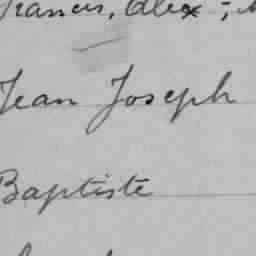 Francis, Alex ;
Jean Joseph
Baptiste